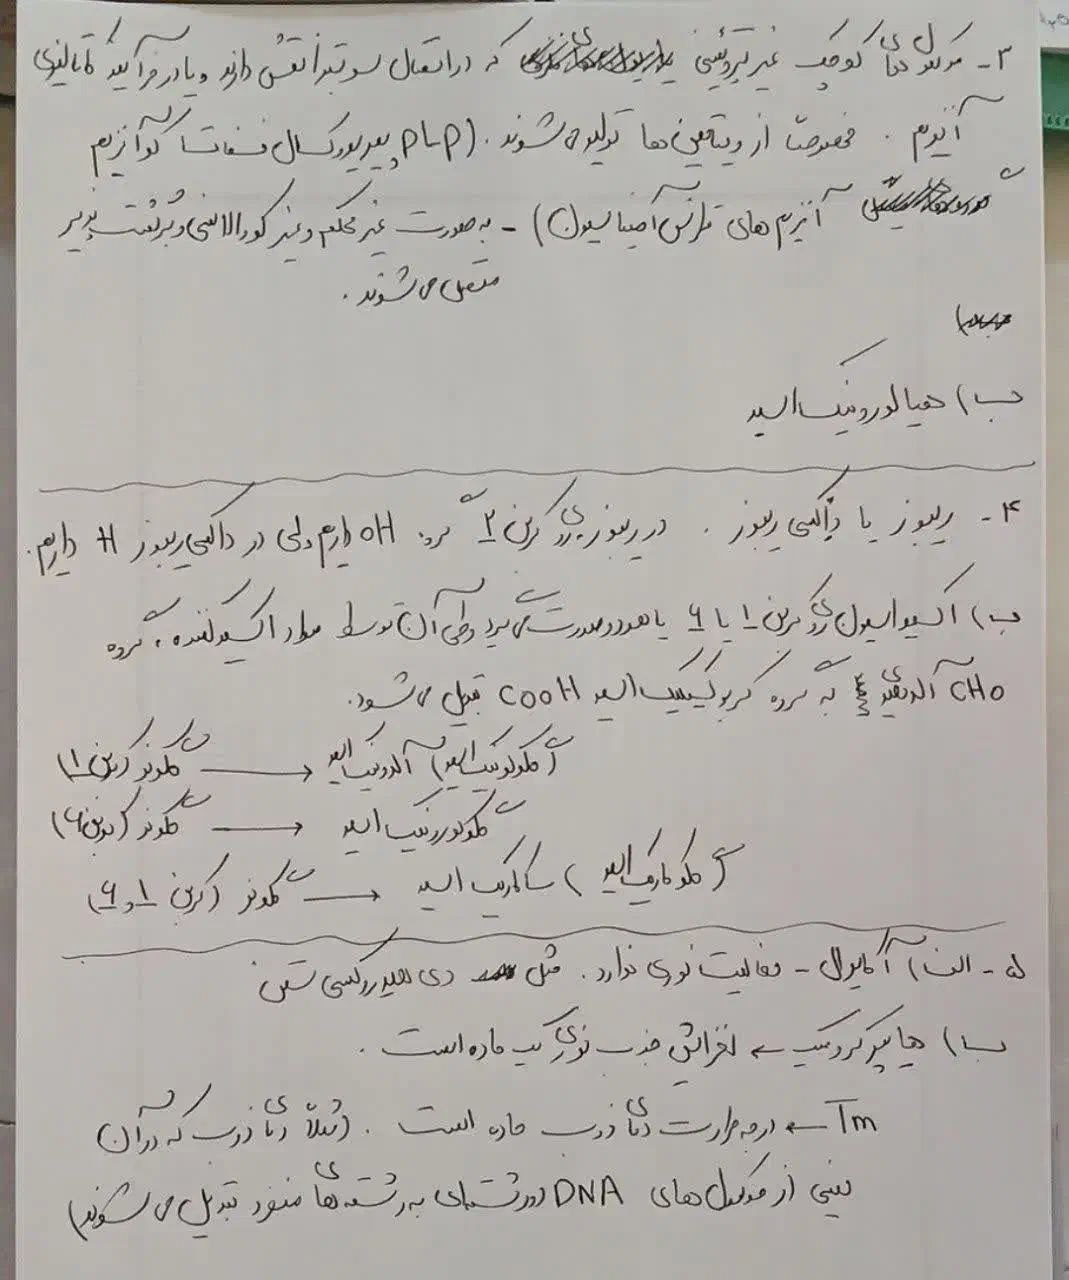 ۳- مولکول های کوچک غیر پروتئینی که در انتقال سوبسترا نقش دارند و یا در فرآیند کاتالیزی
آنزیم. مخصوصاً از ویتامین ها تولید می شوند. (PLP پیریدوکسال فسفات کوآنزیم
آنزیم های ترانس آمیناسیون) - به صورت غیر محکم و غیر کووالانسی و برگشت پذیر
متصل می شوند.
ب) هیالورونیک اسید
۴- ریبوز یا داکسی ریبوز. در ریبوز روی کربن ۲ گروه OH داریم ولی در داکسی ریبوز H داریم.
ب) اکسیداسیون روی کربن ۱ یا ۶ یا هردو صورت می گیرد و طی آن توسط مواد اکسید کننده، گروه
CHO آلدهیدی به گروه کربوکسیلیک اسید COOH تبدیل می شود.
گلوکز (کربن ۱) ⟶ آلدونیک اسید (گلوکونیک اسید)
گلوکز (کربن ۶) ⟶ گلوکورونیک اسید
گلوکز (کربن ۱ و ۶) ⟶ ساکاریک اسید (گلوکاریک اسید)
۵- الف) آکایرال - فعالیت نوری ندارد. مثل دی هیدروکسی استن
ب) هایپرکرومیک ← افزایش جذب نوری یک ماده است.
Tm ← درجه حرارت دمای ذوب ماده است. (مثلاً دمای ذوب که در آن
نیمی از مولکول های DNA دو رشته ای به رشته های منفرد تبدیل می شوند)